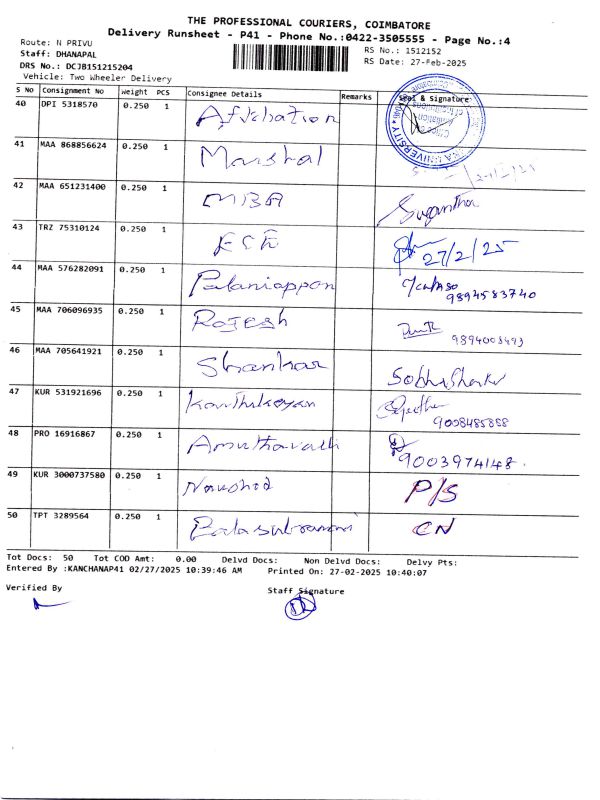 THE PROFESSIONAL COURIERS, COIMBATORE
Delivery Runsheet - P41 - Phone No.:0422-3505555 - Page No.:4
Route: N PRIVU
RS No.: 1512152
Staff: DHANAPAL
RS Date: 27-Feb-2025
DRS No.: DCJB151215204
Vehicle: Two Wheeler Delivery
S No Consignment No Weight PCS Consignee Details Remarks Seal & Signature
40 DPI 5318570 0.250 1
41 MAA 868856624 0.250 1 Marshal
42 MAA 651231400 0.250 1 MBA Sugantha
43 TRZ 75310124 0.250 1 ECE 27/2/25
44 MAA 576282091 0.250 1 Palaniappan 9894583740
45 MAA 706096935 0.250 1 Rajesh 9894008493
46 MAA 705641921 0.250 1 Shankar
47 KUR 531921696 0.250 1 Karthikeyan 9008485888
48 PRO 16916867 0.250 1 Amuthavalli 9003974148
49 KUR 3000737580 0.250 1 Naushad P/S
50 TPT 3289564 0.250 1 Balasubramani CN
Tot Docs: 50 Tot COD Amt: 0.00 Delvd Docs: Non Delvd Docs: Delvy Pts:
Entered By :KANCHANAP41 02/27/2025 10:39:46 AM Printed On: 27-02-2025 10:40:07
Verified By
Staff Signature